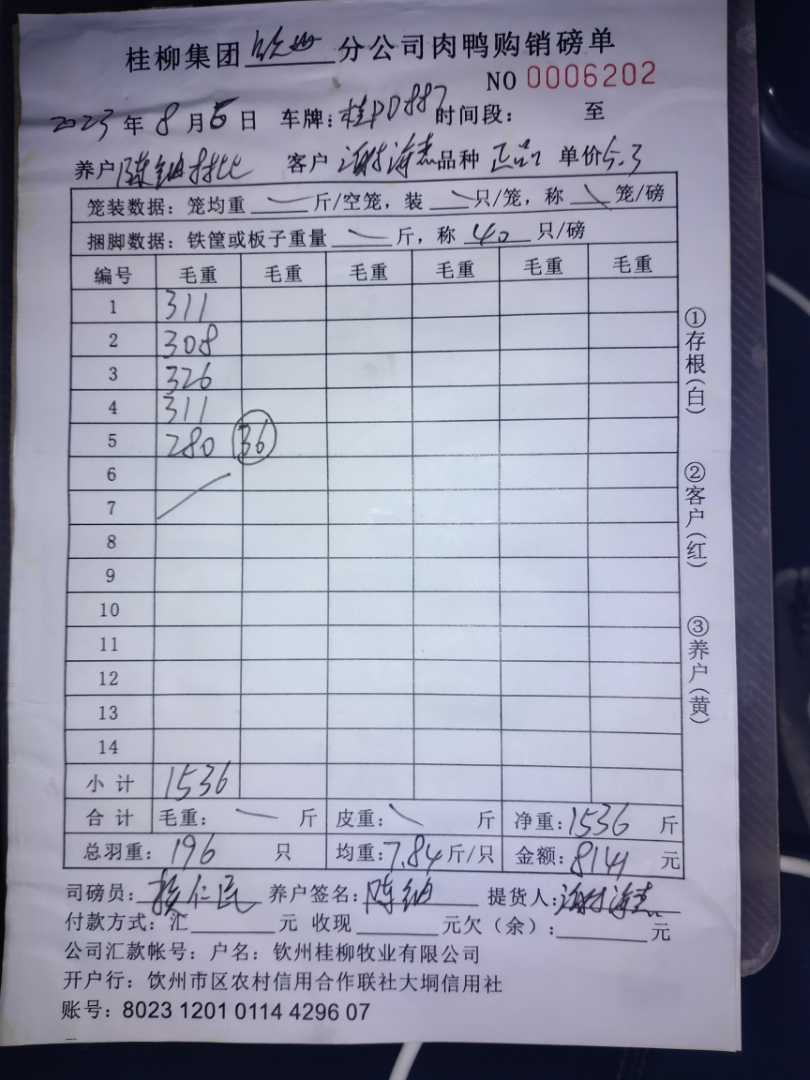 桂柳集团 钦州 分公司肉鸭购销磅单
NO 0006202
2023 年 8 月 5 日 车牌：桂PD887 时间段： 至
养户 陈 客户 谢海杰 品种 正品 单价 5.3
笼装数据：笼均重 斤/空笼，装 只/笼，称 笼/磅
捆脚数据：铁筐或板子重量 斤，称 40 只/磅
编号 毛重 毛重 毛重 毛重 毛重 毛重
1 311
2 308
3 326
4 311
5 280 36
6
7
8
9
10
11
12
13
14
小 计 1536
合 计 毛重： 斤 皮重： 斤 净重：1536 斤
总羽重：196 只 均重：7.84 斤/只 金额：8141 元
司磅员：仁民 养户签名：陈 提货人：谢海杰
付款方式：汇 元 收现 元欠（余）： 元
公司汇款帐号：户名：钦州桂柳牧业有限公司
开户行：饮州市区农村信用合作联社大垌信用社
账号：8023 1201 0114 4296 07
①存根（白）
②客户（红）
③养户（黄）